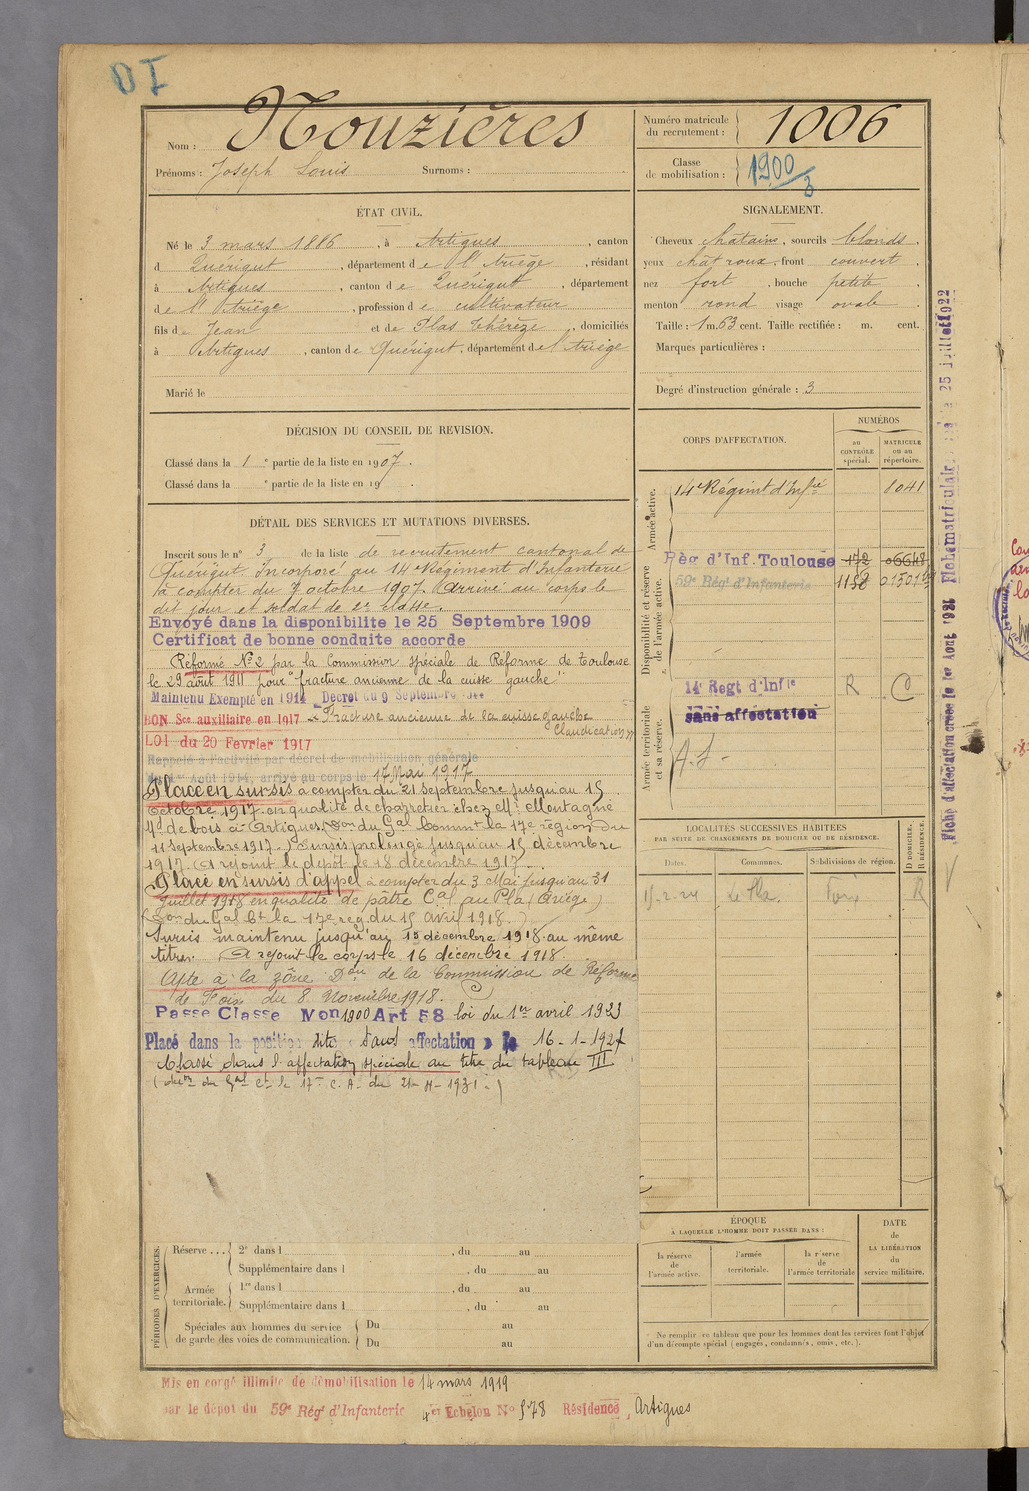 Nom : Nouzières
Prénoms : Joseph Louis Surnoms :
Numéro matricule du recrutement : 1006
Classe de mobilisation : 1900/3
ÉTAT CIVIL.
Né le 3 mars 1886, à Artigues, canton
d Quérigut, département de l'Ariège, résidant
à Artigues, canton de Quérigut, département
de l'Ariège, profession de cultivateur
fils de Jean et de Plas Thérèze, domiciliés
à Artigues, canton de Quérigut, département de l'Ariège
Marié le
SIGNALEMENT.
Cheveux chatains, sourcils blonds,
yeux chat roux, front couvert,
nez fort, bouche petite,
menton rond visage ovale.
Taille : 1 m. 63 cent. Taille rectifiée : m. cent.
Marques particulières :
Degré d'instruction générale : 3
DÉCISION DU CONSEIL DE REVISION.
Classé dans la 1e partie de la liste en 1907.
Classé dans la e partie de la liste en 19 .
DÉTAIL DES SERVICES ET MUTATIONS DIVERSES.
Inscrit sous le n° 3 de la liste de recrutement cantonal de
Quérigut. Incorporé au 14e Régiment d'Infanterie
à compter du 7 octobre 1907. Arrivé au corps le
dit jour et soldat de 2e classe.
Envoyé dans la disponibilite le 25 Septembre 1909
Certificat de bonne conduite accorde
Réformé N° 2 par la Commission spéciale de Réforme de Toulouse
le 29 août 1911 pour "fracture ancienne de la cuisse gauche"
Maintenu Exempté en 1914 Decret du 9 Septembre
BON Sce auxiliaire en 1917 Fracture ancienne de la cuisse gauche
Claudication
LOI du 20 Fevrier 1917
Rappelé à l'activité par décret de mobilisation générale
du 1er Août 1914, arrivé au corps le 17 Mai 1917
Placé en sursis à compter du 21 septembre jusqu'au 15
octobre 1917 en qualité de charretier chez Mr. Montagné
Md de bois à Artigues (Don du Gal Commt la 17e région du
11 septembre 1917.) Sursis prolongé jusqu'au 15 décembre
1917. A rejoint le dépôt le 18 décembre 1917
Placé en sursis d'appel à compter du 3 Mai jusqu'au 31
Juillet 1918 en qualité de pâtre Cal au Pla (Ariège)
(Don du Gal Ct la 17e reg. du 15 avril 1918.)
Sursis maintenu jusqu'au 15 décembre 1918 au même
titre. A rejoint le corps le 16 décembre 1918.
Apte à la zône Don de la Commission de Réforme
de Foix du 8 Novembre 1918.
Passe Classe Mon 1900 Art 58 loi du 1er avril 1923
Placé dans la position dite Sans affectation le 16-1-1927
Classé dans l'affectation spéciale au titre du tableau III
CORPS D'AFFECTATION.
NUMÉROS
au CONTRÔLE spécial.
MATRICULE ou au répertoire.
Armée active.
14e Régimt d'Infie 8041
Disponibilité et réserve de l'armée active.
Rég d'Inf. Toulouse 172
59e Régt d'Infanterie 1158
Armée territoriale et sa réserve.
14e Regt d'Infie R C
sans affectation
A.S-
LOCALITÉS SUCCESSIVES HABITÉES
PAR SUITE DE CHANGEMENTS DE DOMICILE OU DE RÉSIDENCE.
Dates. Communes. Subdivisions de région. D DOMICILE. R RÉSIDENCE.
15.2.24 Le Pla. Foix R
ÉPOQUE
À LAQUELLE L'HOMME DOIT PASSER DANS :
la réserve de l'armée active.
l'armée territoriale.
la réserve de l'armée territoriale
DATE de LA LIBÉRATION du service militaire.
Ne remplir ce tableau que pour les hommes dont les services font l'objet
d'un décompte spécial (engagés, condamnés, omis, etc.).
PÉRIODES D'EXERCICES.
Réserve ... 2e dans l , du au
Supplémentaire dans l , du au
Armée territoriale. 1re dans l , du au
Supplémentaire dans l , du au
Spéciales aux hommes du service de garde des voies de communication. Du au
Du au
Mis en congé illimité de démobilisation le 14 mars 1919
par le dépôt du 59e Régt d'Infanterie 4e Echelon N° 578 Résidence, Artigues